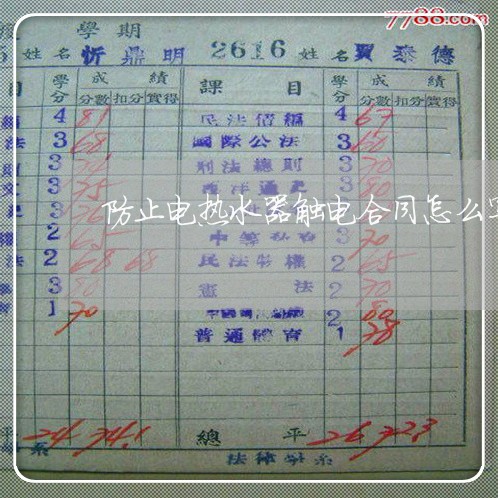 7788.com
學期
姓名 忻鼎明 2616 姓名 賈泰德
目 學分 成績 課目 學分 成績
分數 扣分 實得 分數 扣分 實得
4 81 民法債編 4 67
法 3 68 國際公法 3 60
3 刑法總則 3 70
3 75 西洋通史 3 80
防止电热水器触电合同怎么
2 65 3 70
法 2 68 68 民法物權 2 65
3 80 憲法 2 70
1 70 2 80
普通體育 1 78
平 24 74.1 總平 26 72.3
系 法律學系